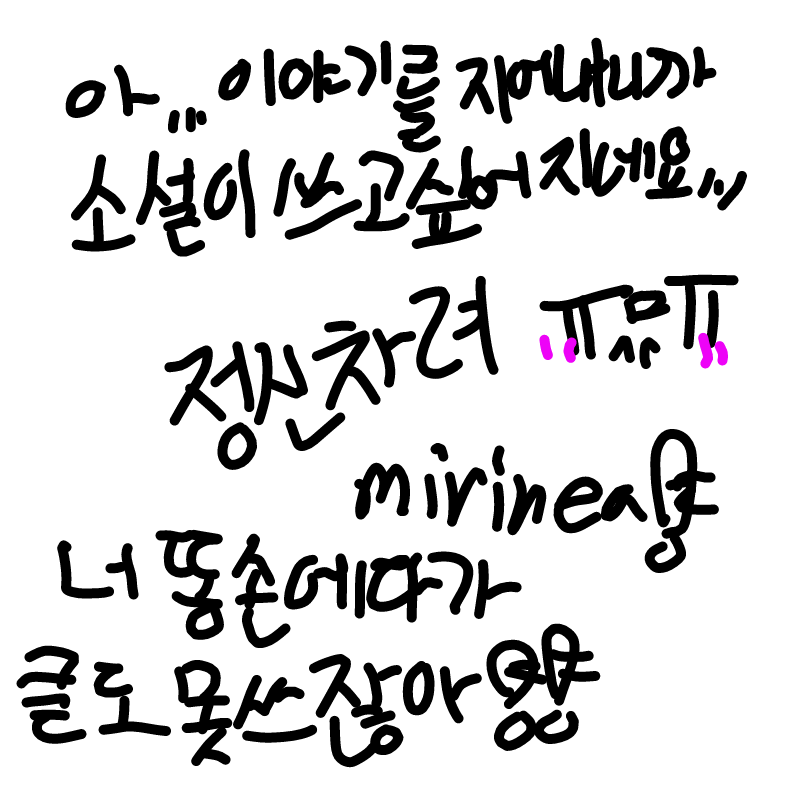 아,,, 이야기를 지어내니까
소설이 쓰고싶어 지네요,,,
정신차려 ㅠㅁㅠ
mirinea얋
너 똥손에다가
글도 못쓰잖아